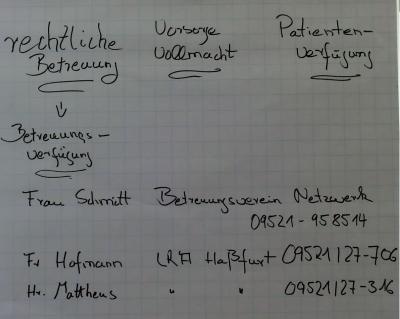 rechtliche Betreuung
Vorsorge Vollmacht
Patienten-
verfügung
Betreuungs-
verfügung
Frau Schmitt Betreuungsverein Netzwerk
09521-958514
Fr Hofmann LRA Haßfurt 09521/27-706
Hr. Mattheus " " 09521/27-316